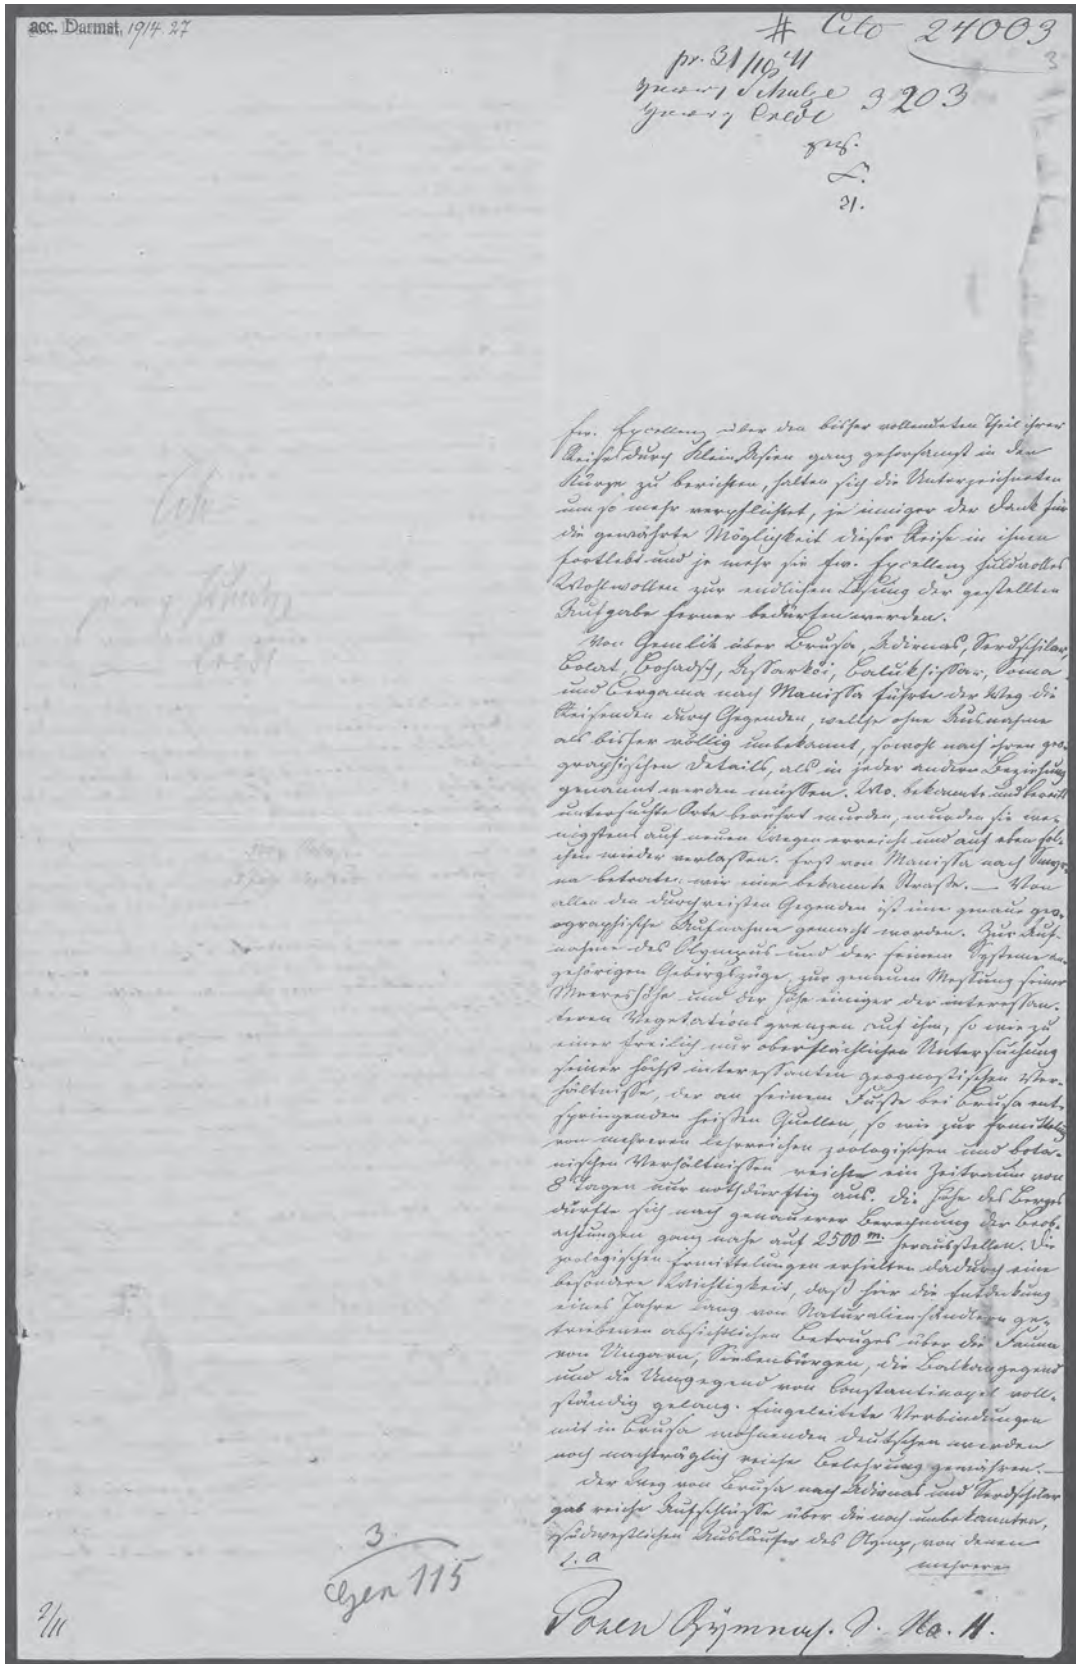 acc. Darmst. 1914.27
# Cito 24003
3
pr. 31/10 41
Schulze 3203
Credé
21.
Ew. Excellenz über den bisher vollendeten Theil ihrer
Reise durch Klein Asien ganz gehorsamst in der
Kürze zu berichten, halten sich die Unterzeichneten
um so mehr verpflichtet, je inniger der Dank für
die gewährte Möglichkeit dieser Reise in ihnen
fortlebt und je mehr sie Ew. Excellenz huldvolles
Wohlwollen zur endlichen Lösung der gestellten
Aufgabe ferner bedürfen werden.
Von Gemlik über Brusa, Adirnas, Serdschilar,
Bolat, Bohadsch, Assarköi, Balukhissar, Soma
und Bergama nach Manissa führte der Weg die
Reisenden durch Gegenden, welche ohne Ausnahme
als bisher völlig unbekannt, sowohl nach ihren geo-
graphischen Details, als in jeder andern Beziehung
genannt werden müssen. Wo bekannte und bereits
untersuchte Orte berührt wurden, wurden sie we-
nigstens auf neuen Wegen erreicht und auf eben sol-
chen wieder verlassen. Erst von Manissa nach Smyr-
na betraten wir eine bekannte Straße. — Von
allen den durchreisten Gegenden ist eine genaue ge-
ographische Aufnahme gemacht worden. Zur Auf-
nahme des Olympus und der seinem Systeme an-
gehörigen Gebirgszüge, zur genauen Messung seiner
Meereshöhe und der Höhe einiger der interessan-
teren Vegetationsgrenzen auf ihm, so wie zu
einer freilich nur oberflächlichen Untersuchung
seiner höchst interessanten geognostischen Ver-
hältnisse, der an seinem Fuße bei Brusa ent-
springenden heißen Quellen, so wie zur Ermittelung
von mehreren lehrreichen zoologischen und bota-
nischen Verhältnissen reichte ein Zeitraum von
8 Tagen nur nothdürftig aus. Die Höhe des Berges
dürfte sich nach genauerer Berechnung der Beob-
achtungen ganz nahe auf 2500 m. herausstellen. Die
zoologischen Ermittelungen erhielten dadurch eine
besondere Wichtigkeit, daß hier die Entdeckung
eines Jahre lang von Naturalienhändlern ge-
triebenen absichtlichen Betruges über die Fauna
von Ungarn, Siebenbürgen, die Balkangegend
und die Umgegend von Constantinopel voll-
ständig gelang. Eingeleitete Verbindungen
mit in Brusa wohnenden Deutschen werden
noch nachträglich reiche Belehrung gewähren. —
Der Weg von Brusa nach Adirnas und Serdschilar
gab reiche Aufschlüsse über die noch unbekannten,
südwestlichen Ausläufer des Olymp, von denen
mehrere
3
Gen 115
2/11
Posen Gymnas. S. No. 11.